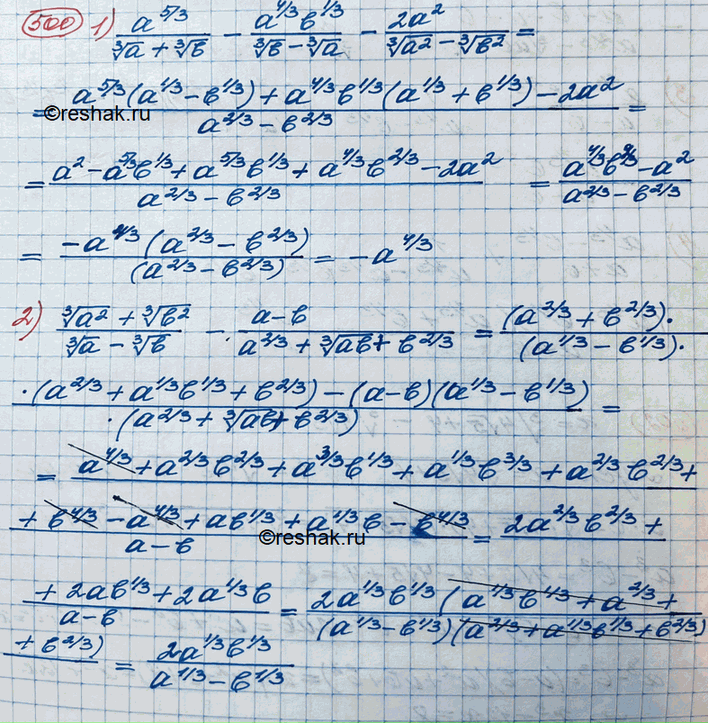 500 1) a^{5/3}/(∛a + ∛b) − a^{4/3}b^{1/3}/(∛b − ∛a) − 2a²/(∛a² − ∛b²) =
= (a^{5/3}(a^{1/3} − b^{1/3}) + a^{4/3}b^{1/3}(a^{1/3} + b^{1/3}) − 2a²)/(a^{2/3} − b^{2/3}) =
©reshak.ru
= (a² − a^{5/3}b^{1/3} + a^{5/3}b^{1/3} + a^{4/3}b^{2/3} − 2a²)/(a^{2/3} − b^{2/3}) = (a^{4/3}b^{2/3} − a²)/(a^{2/3} − b^{2/3})
= −a^{4/3}(a^{2/3} − b^{2/3})/(a^{2/3} − b^{2/3}) = −a^{4/3}
2) (∛a² + ∛b²)/(∛a − ∛b) − (a − b)/(a^{2/3} + ∛ab + b^{2/3}) = (a^{2/3} + b^{2/3})·/(a^{1/3} − b^{1/3})·
·(a^{2/3} + a^{1/3}b^{1/3} + b^{2/3}) − (a − b)(a^{1/3} − b^{1/3})/·(a^{2/3} + ∛ab + b^{2/3}) =
= a^{4/3} + a^{2/3}b^{2/3} + a^{3/3}b^{1/3} + a^{1/3}b^{3/3} + a^{2/3}b^{2/3} +
+ b^{4/3} − a^{4/3} + ab^{1/3} + a^{1/3}b − b^{4/3}/(a − b) = 2a^{2/3}b^{2/3} +
©reshak.ru
+ 2ab^{1/3} + 2a^{1/3}b/(a − b) = 2a^{1/3}b^{1/3}(a^{1/3}b^{1/3} + a^{2/3} +/(a^{1/3} − b^{1/3})(a^{2/3} + a^{1/3}b^{1/3} + b^{2/3})
+ b^{2/3}) = 2a^{1/3}b^{1/3}/(a^{1/3} − b^{1/3})